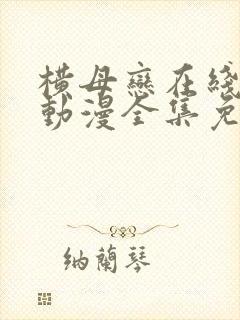 横母恋在线
動漫全集免
納蘭琴